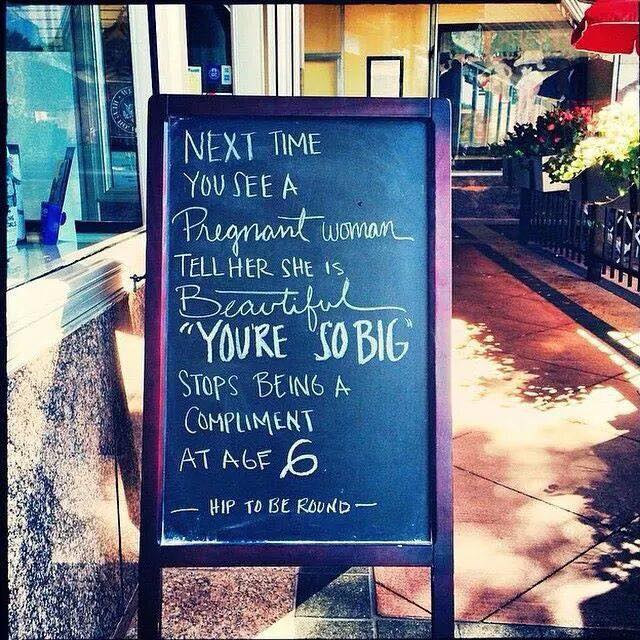 NEXT TIME
YOU SEE A
Pregnant woman
TELL HER SHE IS
Beautiful
"YOU'RE SO BIG"
STOPS BEING A
COMPLIMENT
AT AGE 6
— HIP TO BE ROUND —